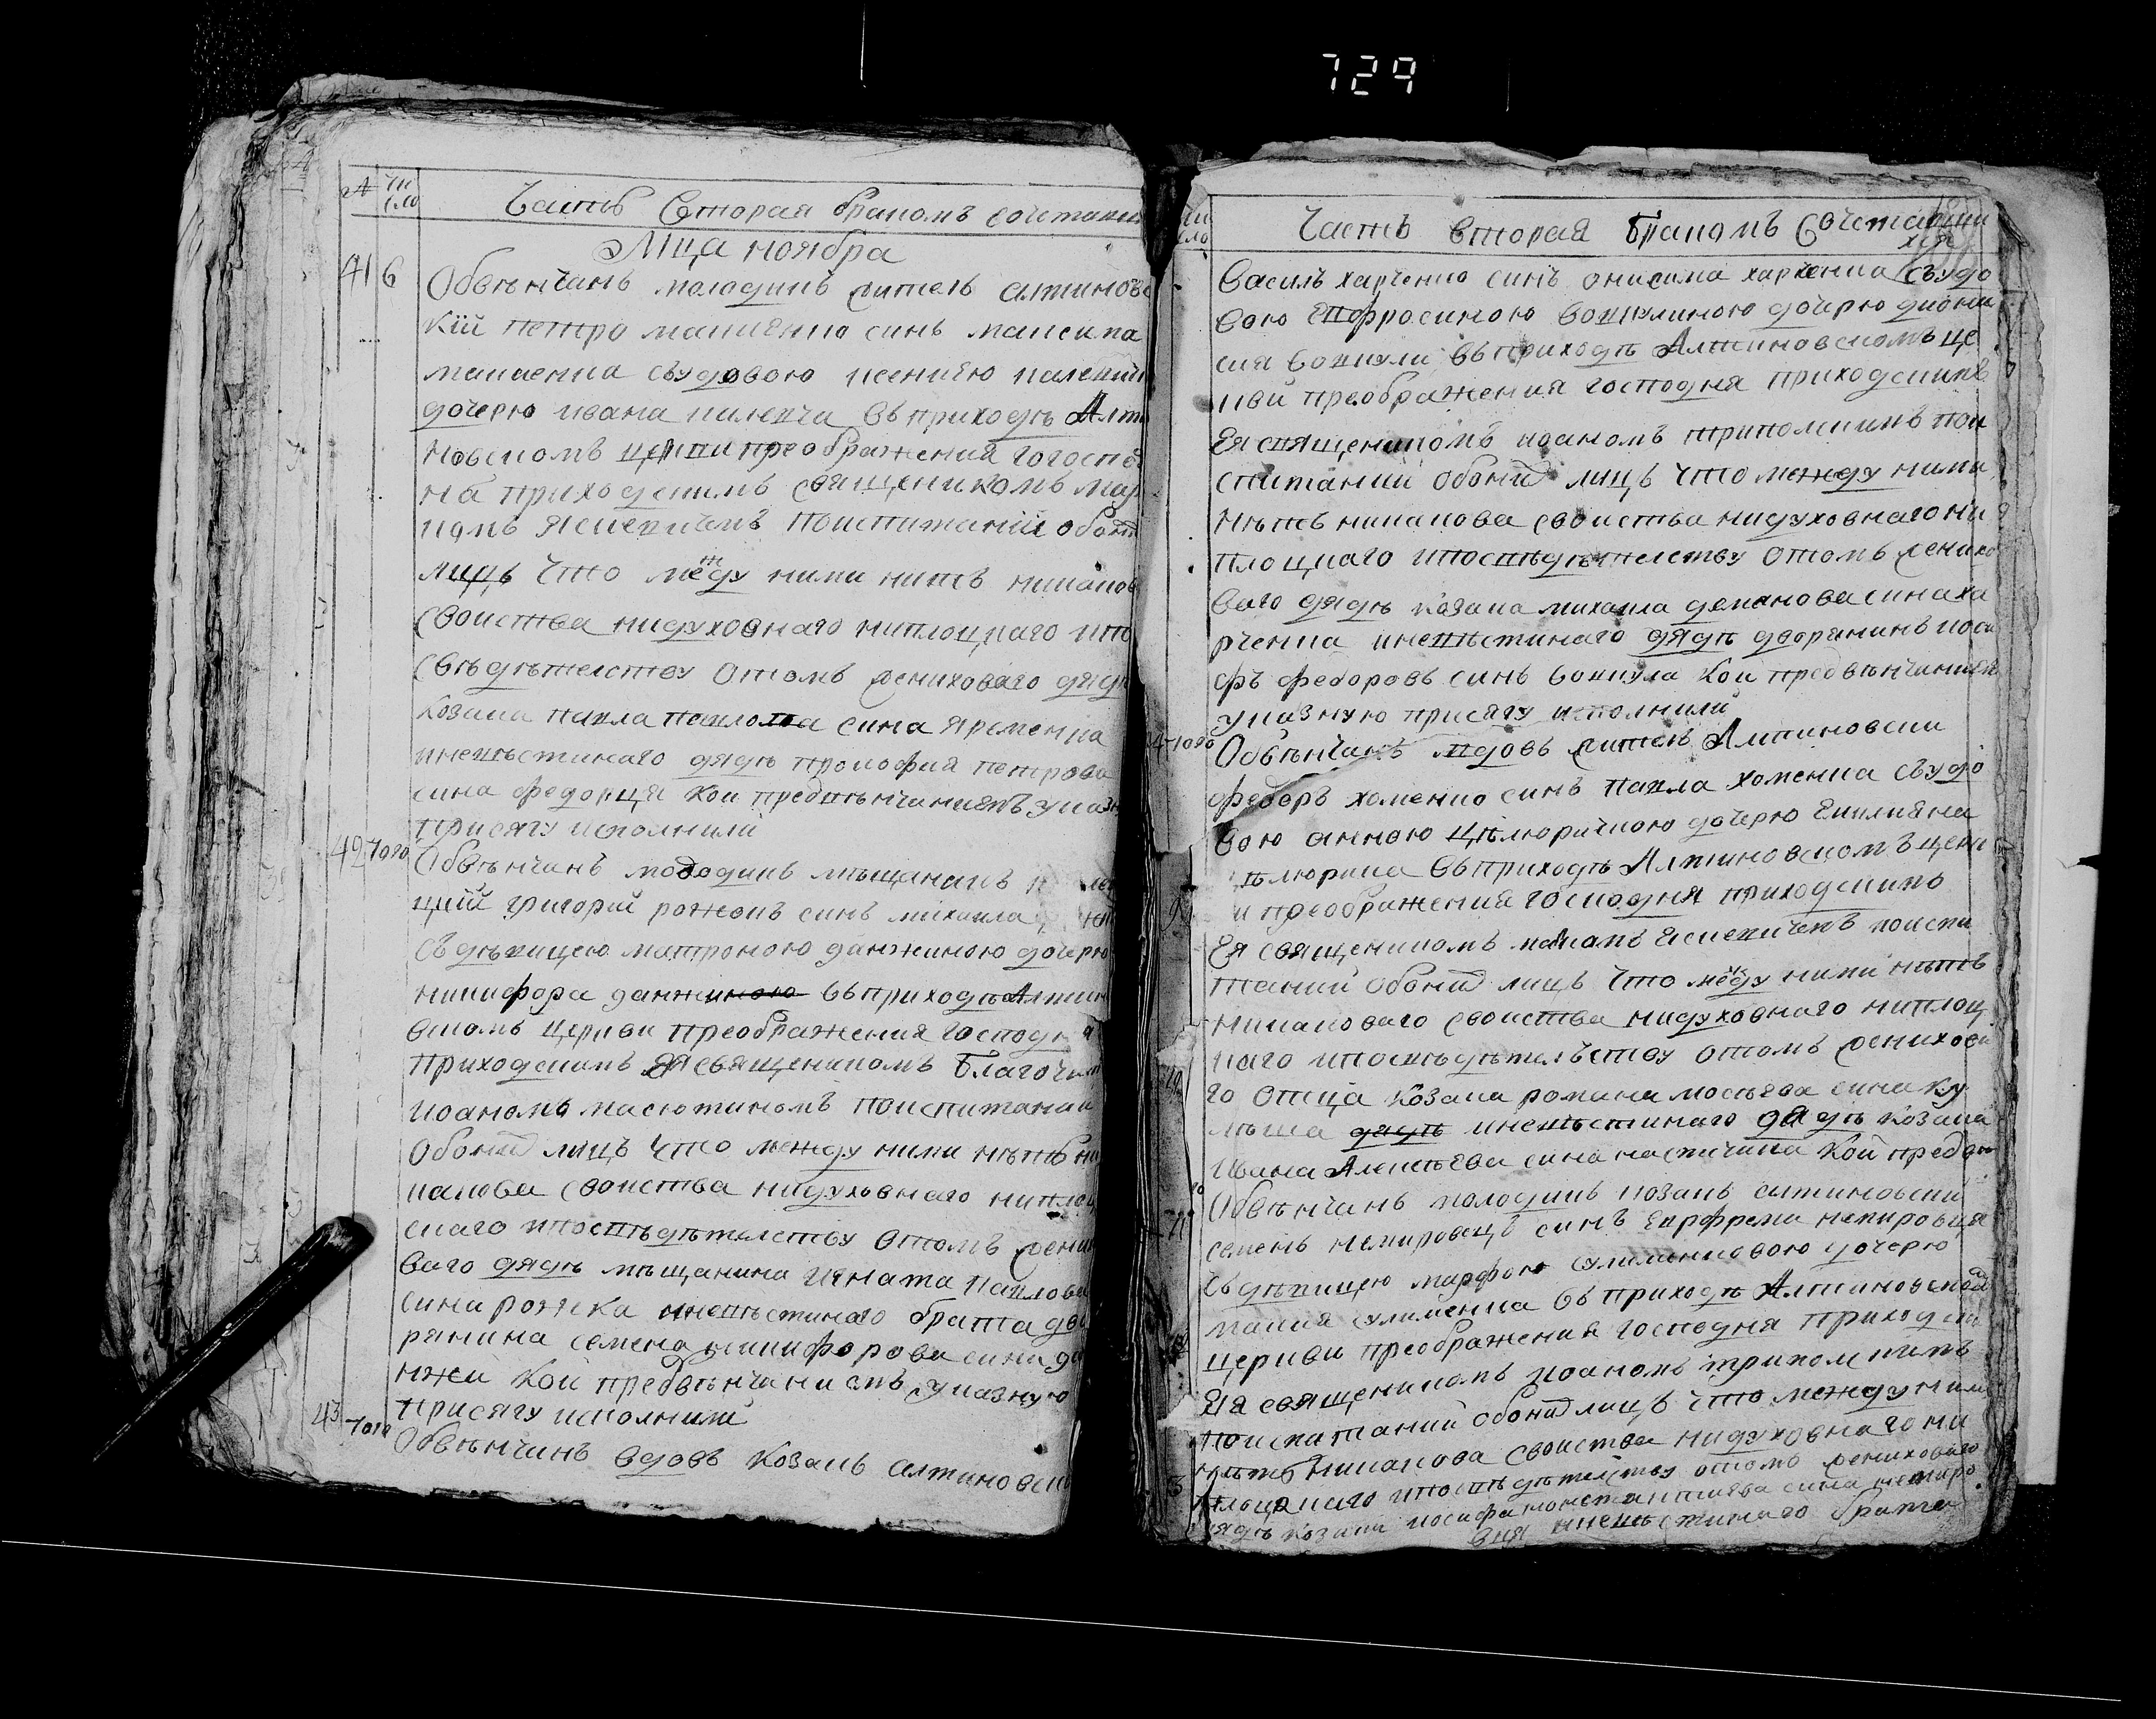 729
№ чи сло
Часть Вторая браком сочетани
Мца ноября
41 6 Обвѣнчанъ молодикъ житель алтиновс
кїй петро макаенко синъ максима
макаенка съ удовою ксениею палевий
дочерю ивана палевча въ приходѣ Алти
новском церкви преображения гогоспо
на приходским священиком мар
комъ Ясневичемъ по испитании обоих
лицъ что между ними нитъ никаков
своиства ни духовнаго ни плоцкаго и по
свѣдѣтелству о томъ женихового дядѣ
козака павла сина яременка
и невѣстинаго дядѣ прокофия петрова
сина федорця кои пред вѣнчаниемъ указн
присягу исполнили
42 того Обвѣнчанъ молодикъ мѣщанинъ
цкий григорий рожокъ синъ михаила
съ дѣвицею матроною данжиною дочерю
никифора данжиною въ приходѣ Алтин
вском церкви преображения господня
приходским священиком Благочин
иоаном масютиномъ по испитании
обоихъ лицъ что между ними нѣтъ ни
какова своиства ни духовнаго ни плоц
скаго и по свѣдѣтелству о томъ жених
ваго дядѣ мѣщанина игната павлова
сина рожка и невѣстинаго брата дво
рянина семена никифорова сина да
нжи кои пред вѣнчаниемъ указную
присягу исполнили
43 того Обвѣнчанъ вдовъ козакъ алтиновски
чи сло
Часть Вторая Браком Сочетавши
хся
Василъ харченко синъ онисима харченка съ удо
вою Евфросиною вожкулиною дочерю диони
въ приходѣ Алтиновском це
ркви преображения господня приходским
Ея священиком иоаном триполским по и
спитании обоих лицъ что между ними
нѣтъ никакова своиства ни духовнаго ни
плоцкаго и по свѣдѣтелству о томъ женихо
ваго дядѣ козака михаила демянова сина ха
рченка и невѣстинаго дядѣ дворянинъ иоси
фъ федоровъ синъ кои пред вѣнчанием
указную присягу исполнили
44 того Обвѣнчанъ вдовъ житель Алтиновски
федоръ хоменко синъ павла хоменка съ удо
вою анною цѣлюричною дочерю Емилияна
цѣлюрика въ приходѣ Алтиновском церкв
и преображения господня приходским
Ея священиком Ясневичем по испи
тании обоих лицъ что между ними нѣтъ
никаковаго своиства ни духовнаго ни плоц
каго и по свѣдѣтелъству о томъ женихова
го отца козака романа мосѣева сина ку
дядѣ и невѣстинаго дядѣ козака
ивана Алексѣева сина кои пред вѣ
Обвѣнчанъ молодикъ козакъ алтиновски
семенъ немировецъ синъ Евфрема немировця
съ дѣвицею марфою сулименковою дочерю
сулименка въ приходѣ Алтиновском
церкви преображения господня приходски
Ея священиком иоаном триполским
по испитании обоих лицъ что между ними
нѣтъ никакова своиства ни духовнаго ни
плоцкаго и по свѣдѣтелству о томъ женихового
дядѣ козака иосифа константиева сина немиро
вця и невѣстинаго брата